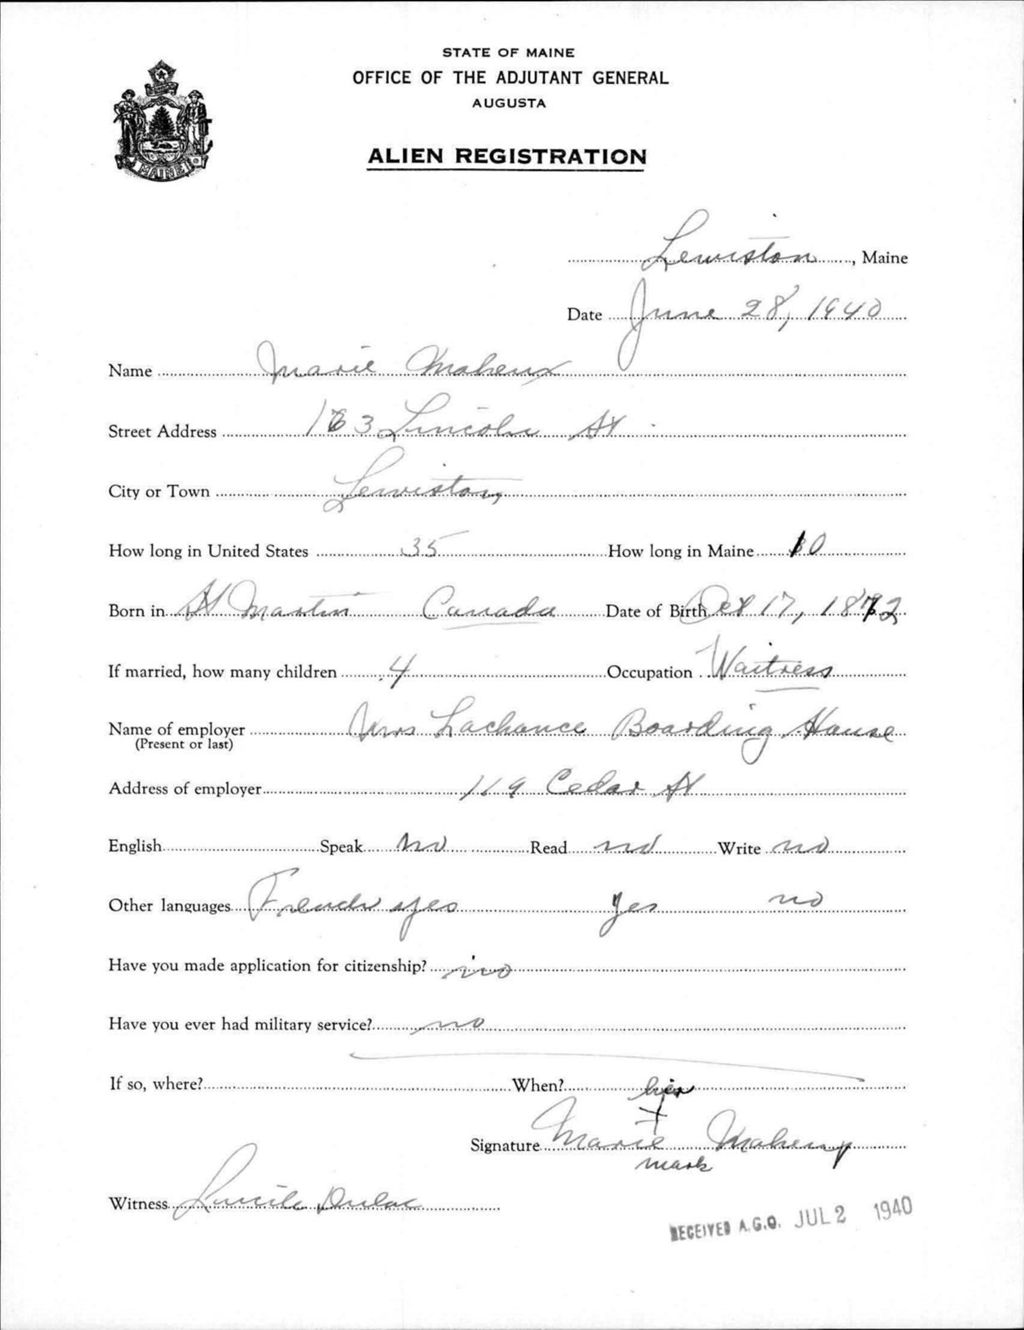 STATE OF MAINE
OFFICE OF THE ADJUTANT GENERAL
AUGUSTA
MAINE
ALIEN REGISTRATION
Lewiston, Maine
Date June 28, 1940
Name Marie Maheux
Street Address 163 Lincoln St
City or Town Lewiston
How long in United States 35 How long in Maine 10
Born in St Martin Canada Date of Birth Oct 17, 1872
If married, how many children 4 Occupation Waitress
Name of employer Mrs Lachance Boarding House
(Present or last)
Address of employer 119 Cedar St
English Speak No Read no Write no
Other languages French yes yes no
Have you made application for citizenship? no
Have you ever had military service? no
If so, where? When?
her
Signature Marie X Maheux
mark
Witness Lucile Dulac
RECEIVED A.G.O. JUL 2 1940